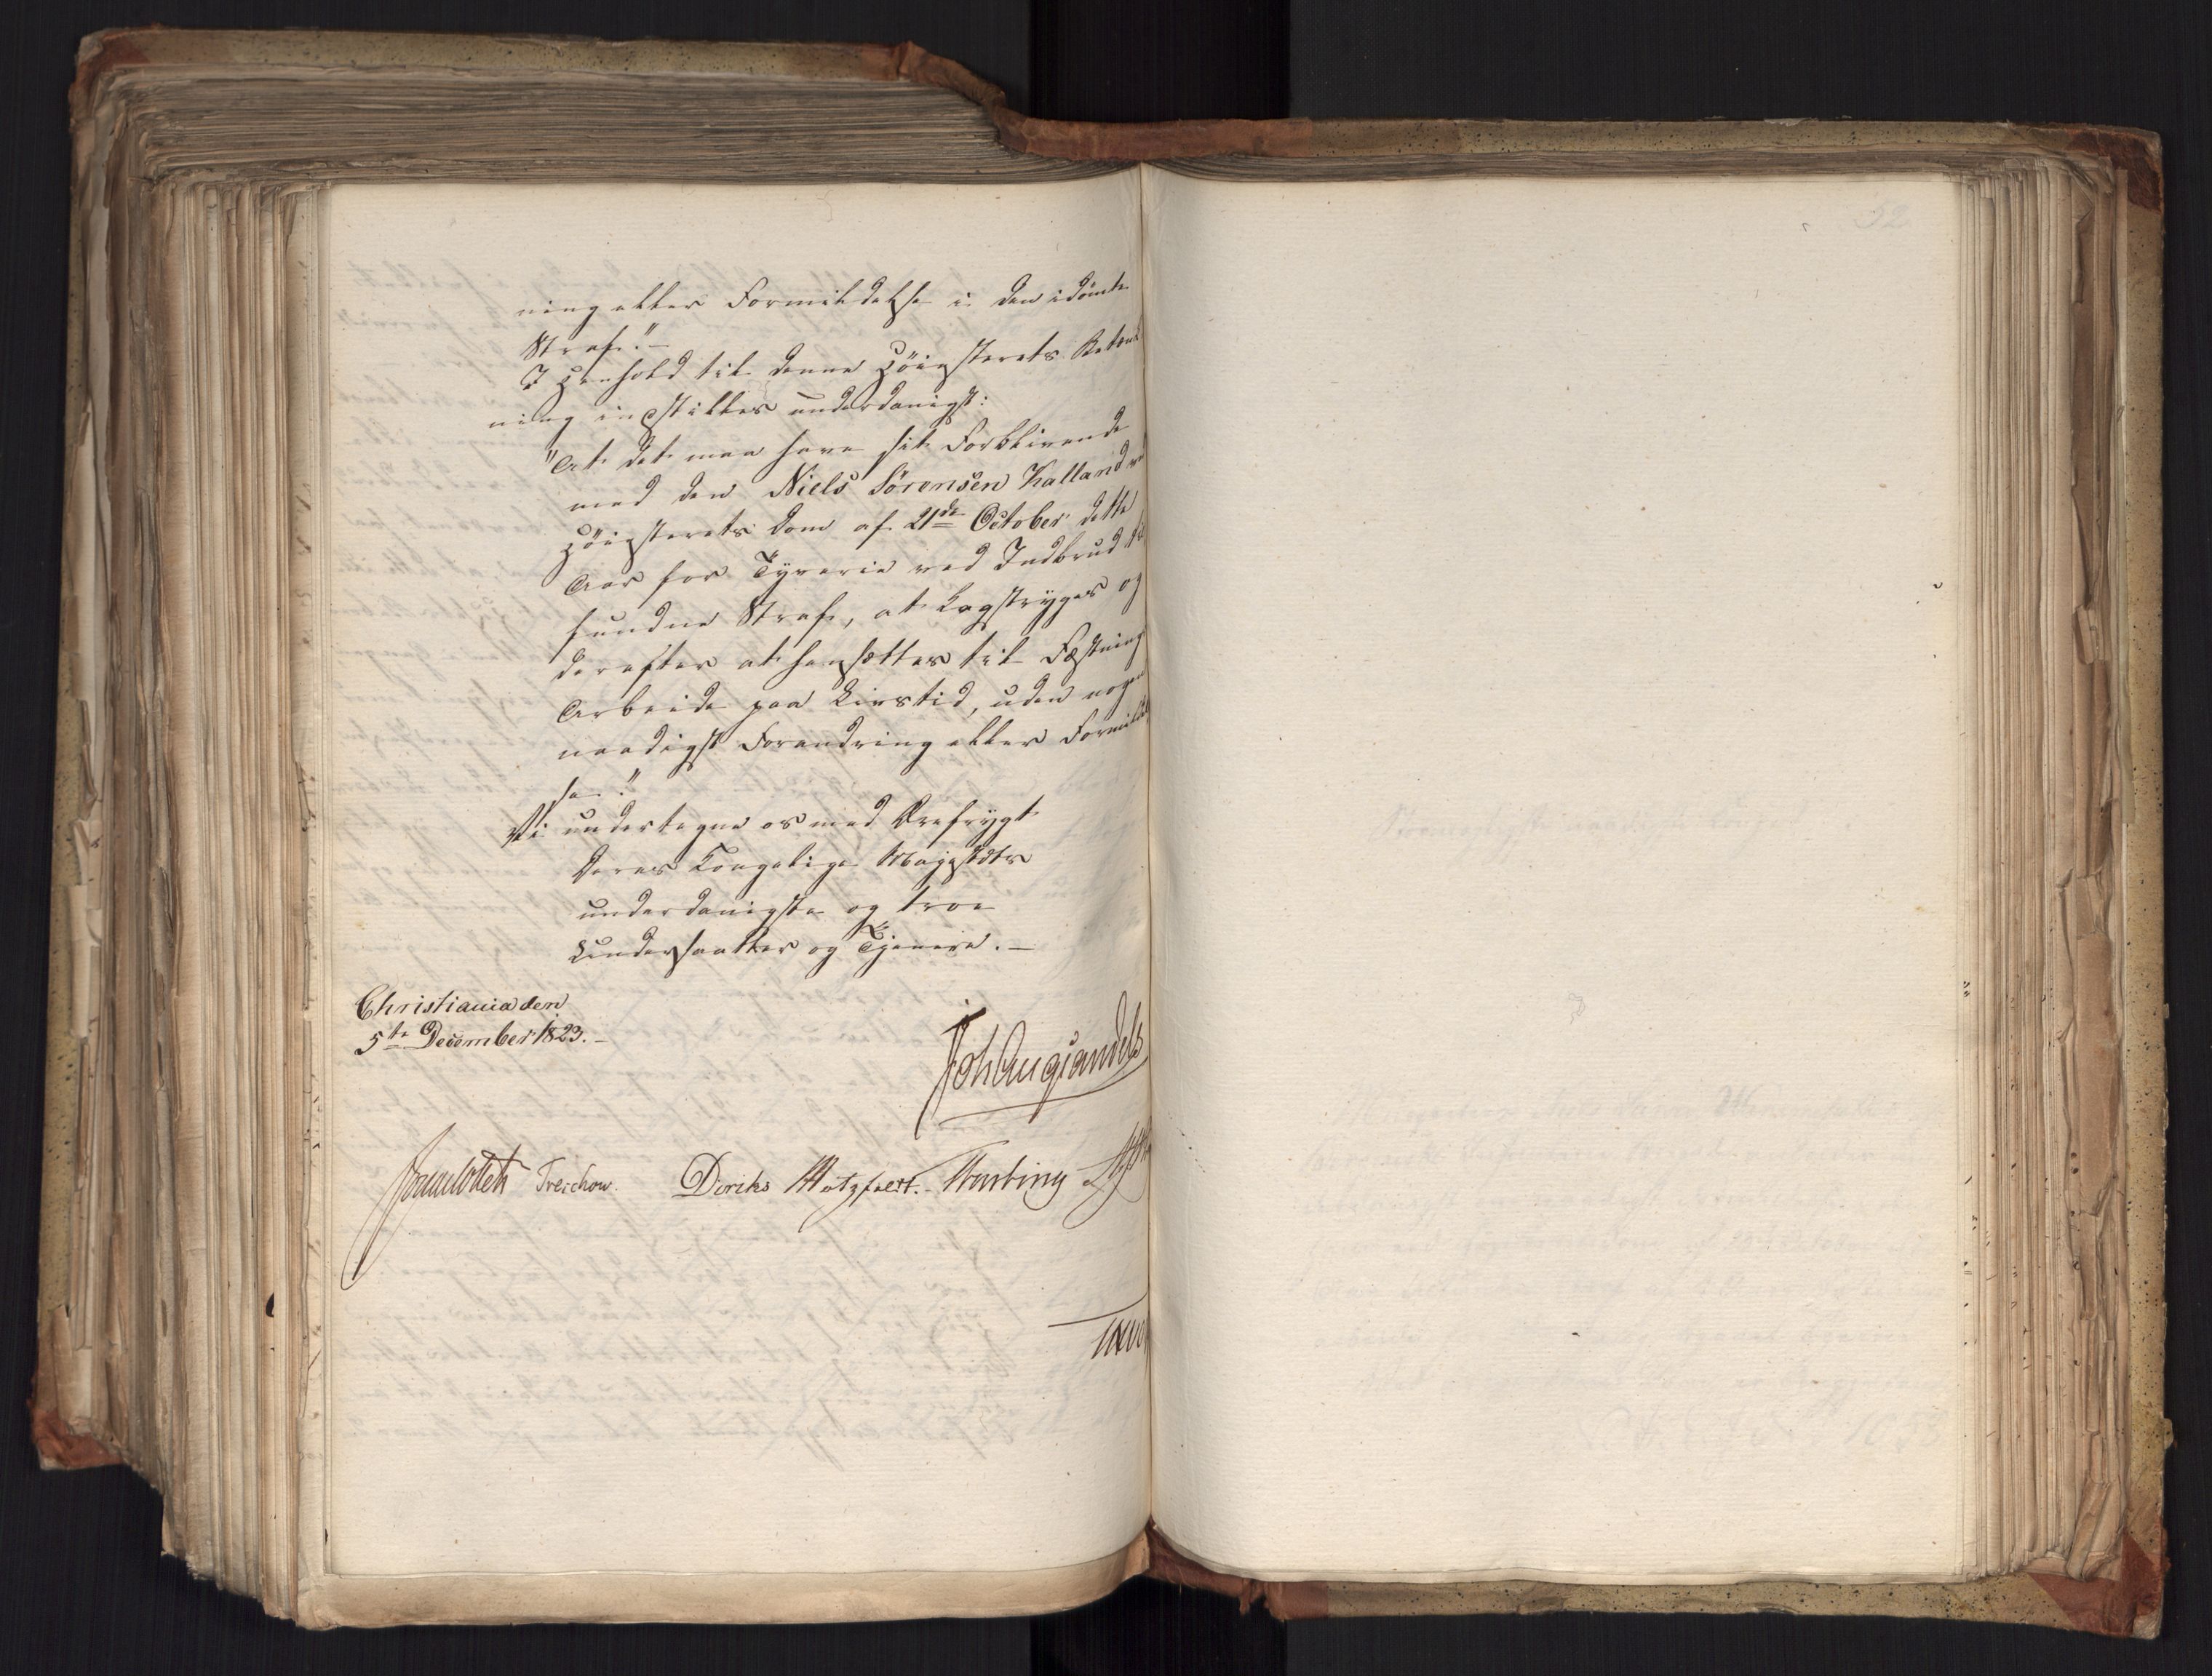 ning eller Formildelse i den idømte
Straf."—
I Henhold til denne Höiesterets Betænk
ning indstilles underdanigst:
"At det maa have sit Forblivende
med den Niels Sörensen Kalland ved
Höiesterets Dom af 21de October dette
Aar for Tyverie ved Indbrud til
fundne Straf, at kagstryges og
derefter at hensættes til Fæstnings
Arbeide paa Livstid, uden nogen
naadigst Forandring eller Formildel
se."
Vi undertegne os med Ærefrygt
Deres Kongelige Majestæts
underdanigste og troe
Undersaatter og Tjenere.—
Christiania den
5te December 1823.—
Joh Aug Sandels
Jonas Collett Treschow. Diriks Motzfeldt. Fasting
52